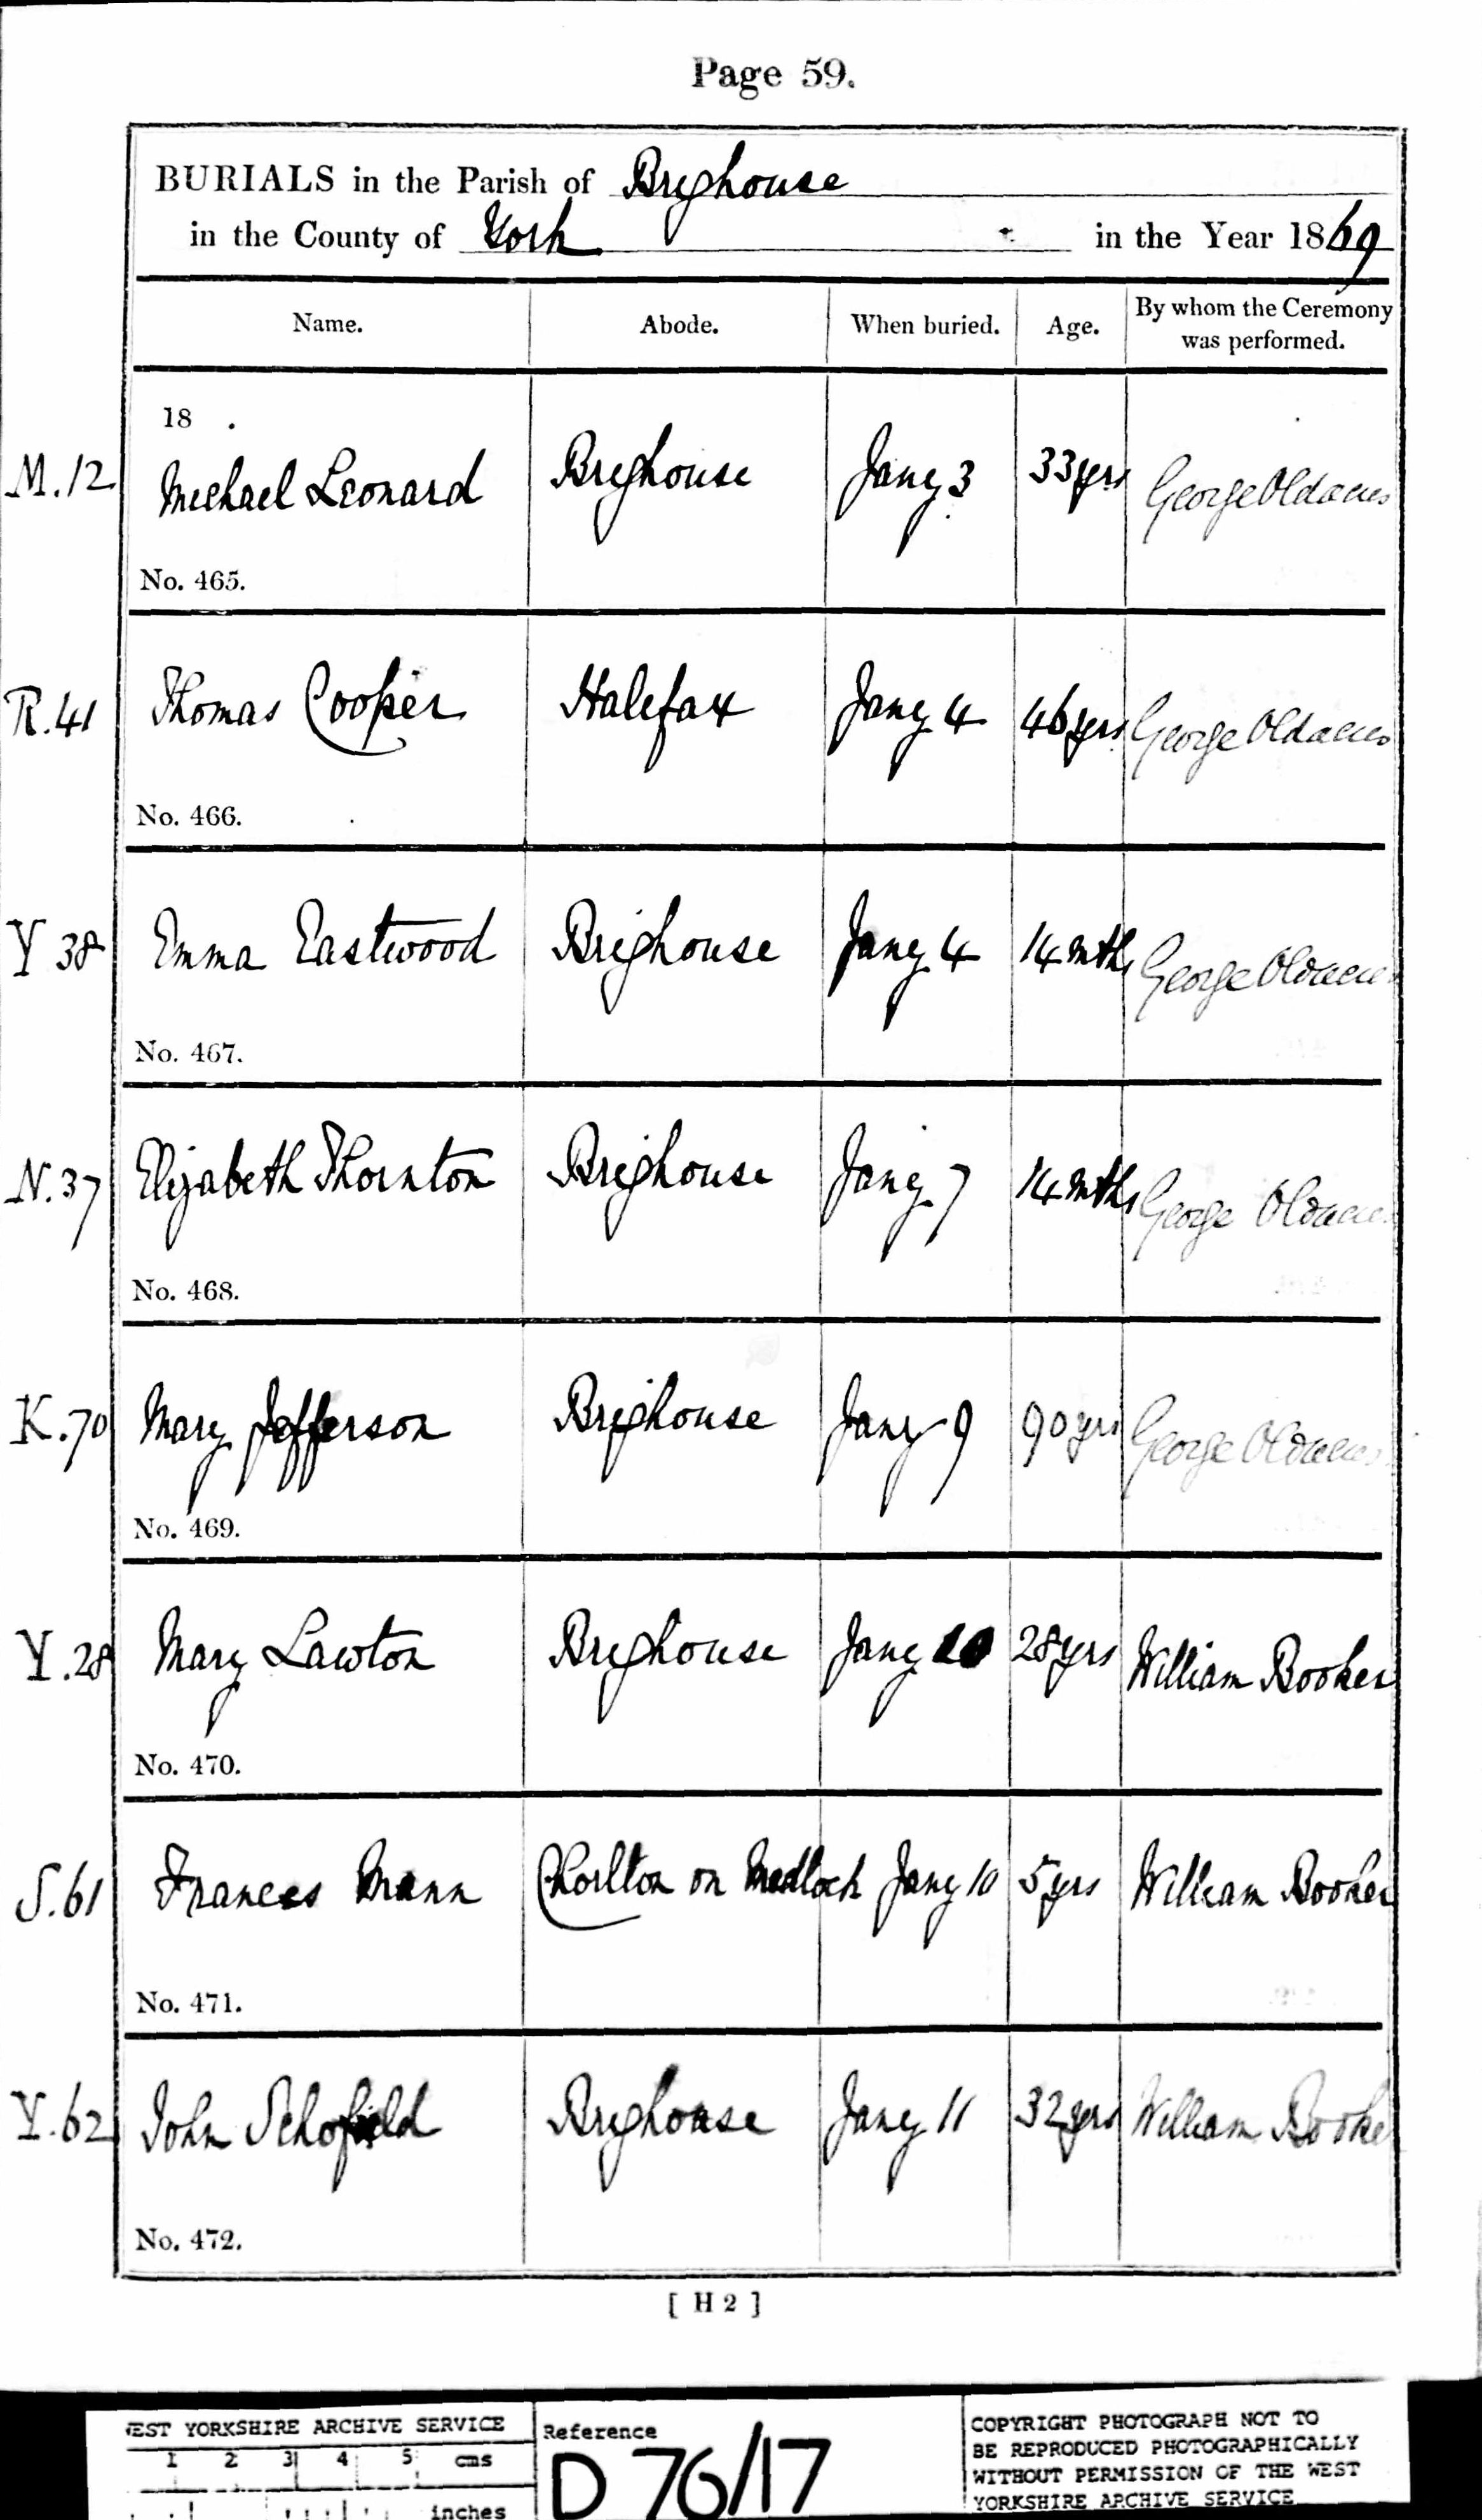 Page 59.
BURIALS in the Parish of Brighouse
in the County of York in the Year 1869
Name. Abode. When buried. Age. By whom the Ceremony was performed.
18 .
M.12 Michael Leonard Brighouse Jany 3 33 yrs George Oldacres
No. 465.
R.41 Thomas Cooper Halifax Jany 4 46 yrs George Oldacres
No. 466.
Y 38 Emma Eastwood Brighouse Jany 4 14 mths George Oldacres
No. 467.
N.37 Elizabeth Thornton Brighouse Jany 7 14 mths George Oldacres
No. 468.
K.70 Mary Jefferson Brighouse Jany 9 90 yrs George Oldacres
No. 469.
Y.28 Mary Lawton Brighouse Jany 10 28 yrs William Booker
No. 470.
S.61 Frances Mann Chorlton on Medlock Jany 10 5 yrs William Booker
No. 471.
Y.62 John Schofield Brighouse Jany 11 32 yrs William Booker
No. 472.
[ H 2 ]
WEST YORKSHIRE ARCHIVE SERVICE
1 2 3 4 5 cms
inches
Reference
D 76/17
COPYRIGHT PHOTOGRAPH NOT TO
BE REPRODUCED PHOTOGRAPHICALLY
WITHOUT PERMISSION OF THE WEST
YORKSHIRE ARCHIVE SERVICE